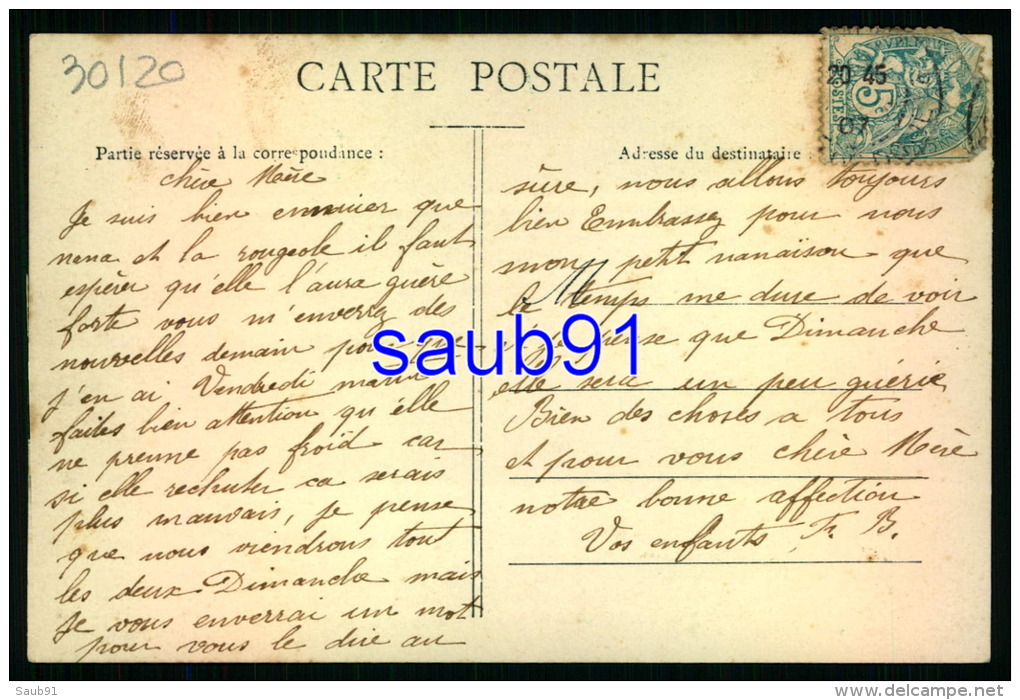 30120
CARTE POSTALE
20 45
07
5c
POSTES
Partie réservée à la correspondance :
Adresse du destinataire
chère Mère
Je suis bien ennuier que
nena et la rougeole il faut
espérer qu'elle l'aura guère
forte vous m'enverrez des
nouvelles demain pour que
j'en ai Vendredi matin
faites bien attention qu'elle
ne prenne pas froid car
si elle rechuter ca serais
plus mauvais, je pense
que nous viendrons tout
les deux Dimanche mais
je vous enverrai un mot
pour vous le dire au
sûre, nous allons toujours
bien Embrassez pour nous
mon petit nanaison que
le temps me dure de voir
j'espère que Dimanche
elle sera un peu guérie
Bien des choses a tous
et pour vous chère Mère
notre bonne affection
Vos enfants F. B.
saub91
Saub91
delcampe.net